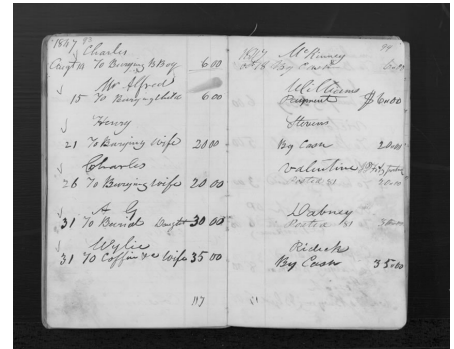 1847
Charles
Augt 14 To Burying B Boy 6 00
Mr Alfred
15 To Burying Child 6 00
Henry
21 To Burying Wife 20 00
Charles
26 To Burying Wife 20 00
A G
31 To Burial Daught 30 00
Wylie
31 To Coffin &c Wife 35 00
117
1847 McKinney
18 By Cash 6 00
Williams
Payment $6.00
Stevens
By Cash 20.00
Valentine
Posted 20.00
Dabney
Posted
Ridick
By Cash 35.00